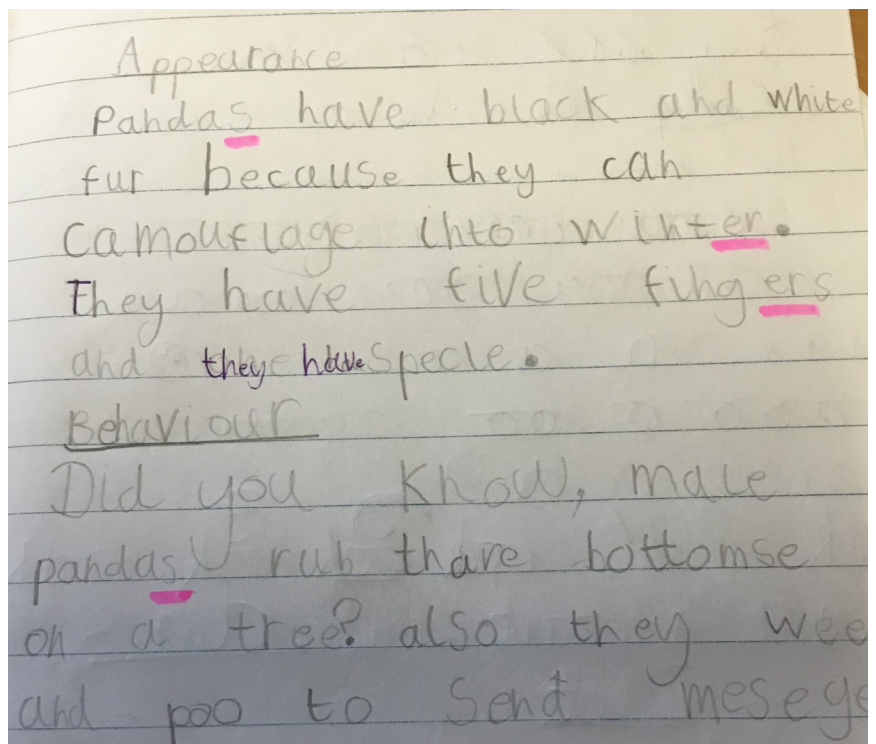 Appearance
Pandas have black and white
fur because they can
camouflage into winter.
They have five fingers
and they have specle.
Behaviour
Did you know, male
pandas rub thare bottomse
on a tree? also they wee
and poo to send mesege